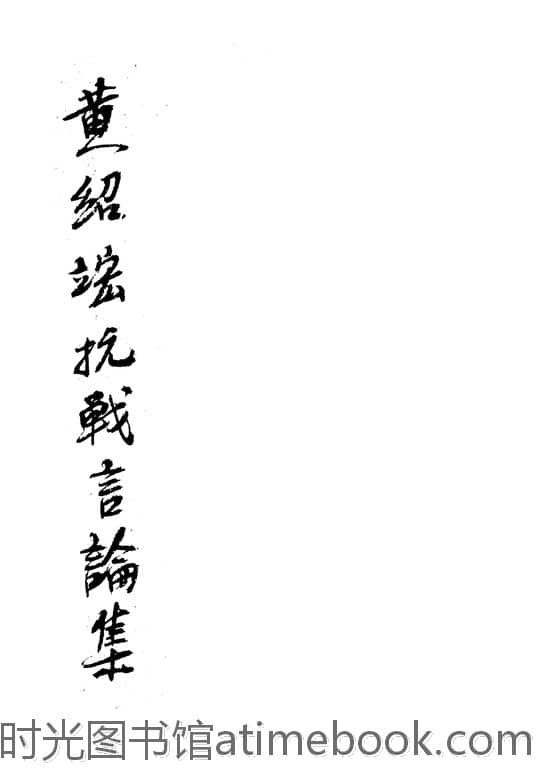 黄紹竑抗戰言論集
时光图书馆atimebook.com